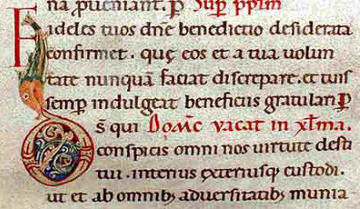 na proueniant. P Sup ppłm
Fideles tuos dñe benedictio desiderata
confirmet. quę eos et a tua uolun
tate nunquã faciat discrepare. et tuis
semp indulgeat beneficiis gratulari. P
Ds qui Dom̃c vacat in xl.ma.
conspicis omni nos uirtute desti
tui. interius exteriusq; custodi.
ut et ab omnib; aduersitatib; munia